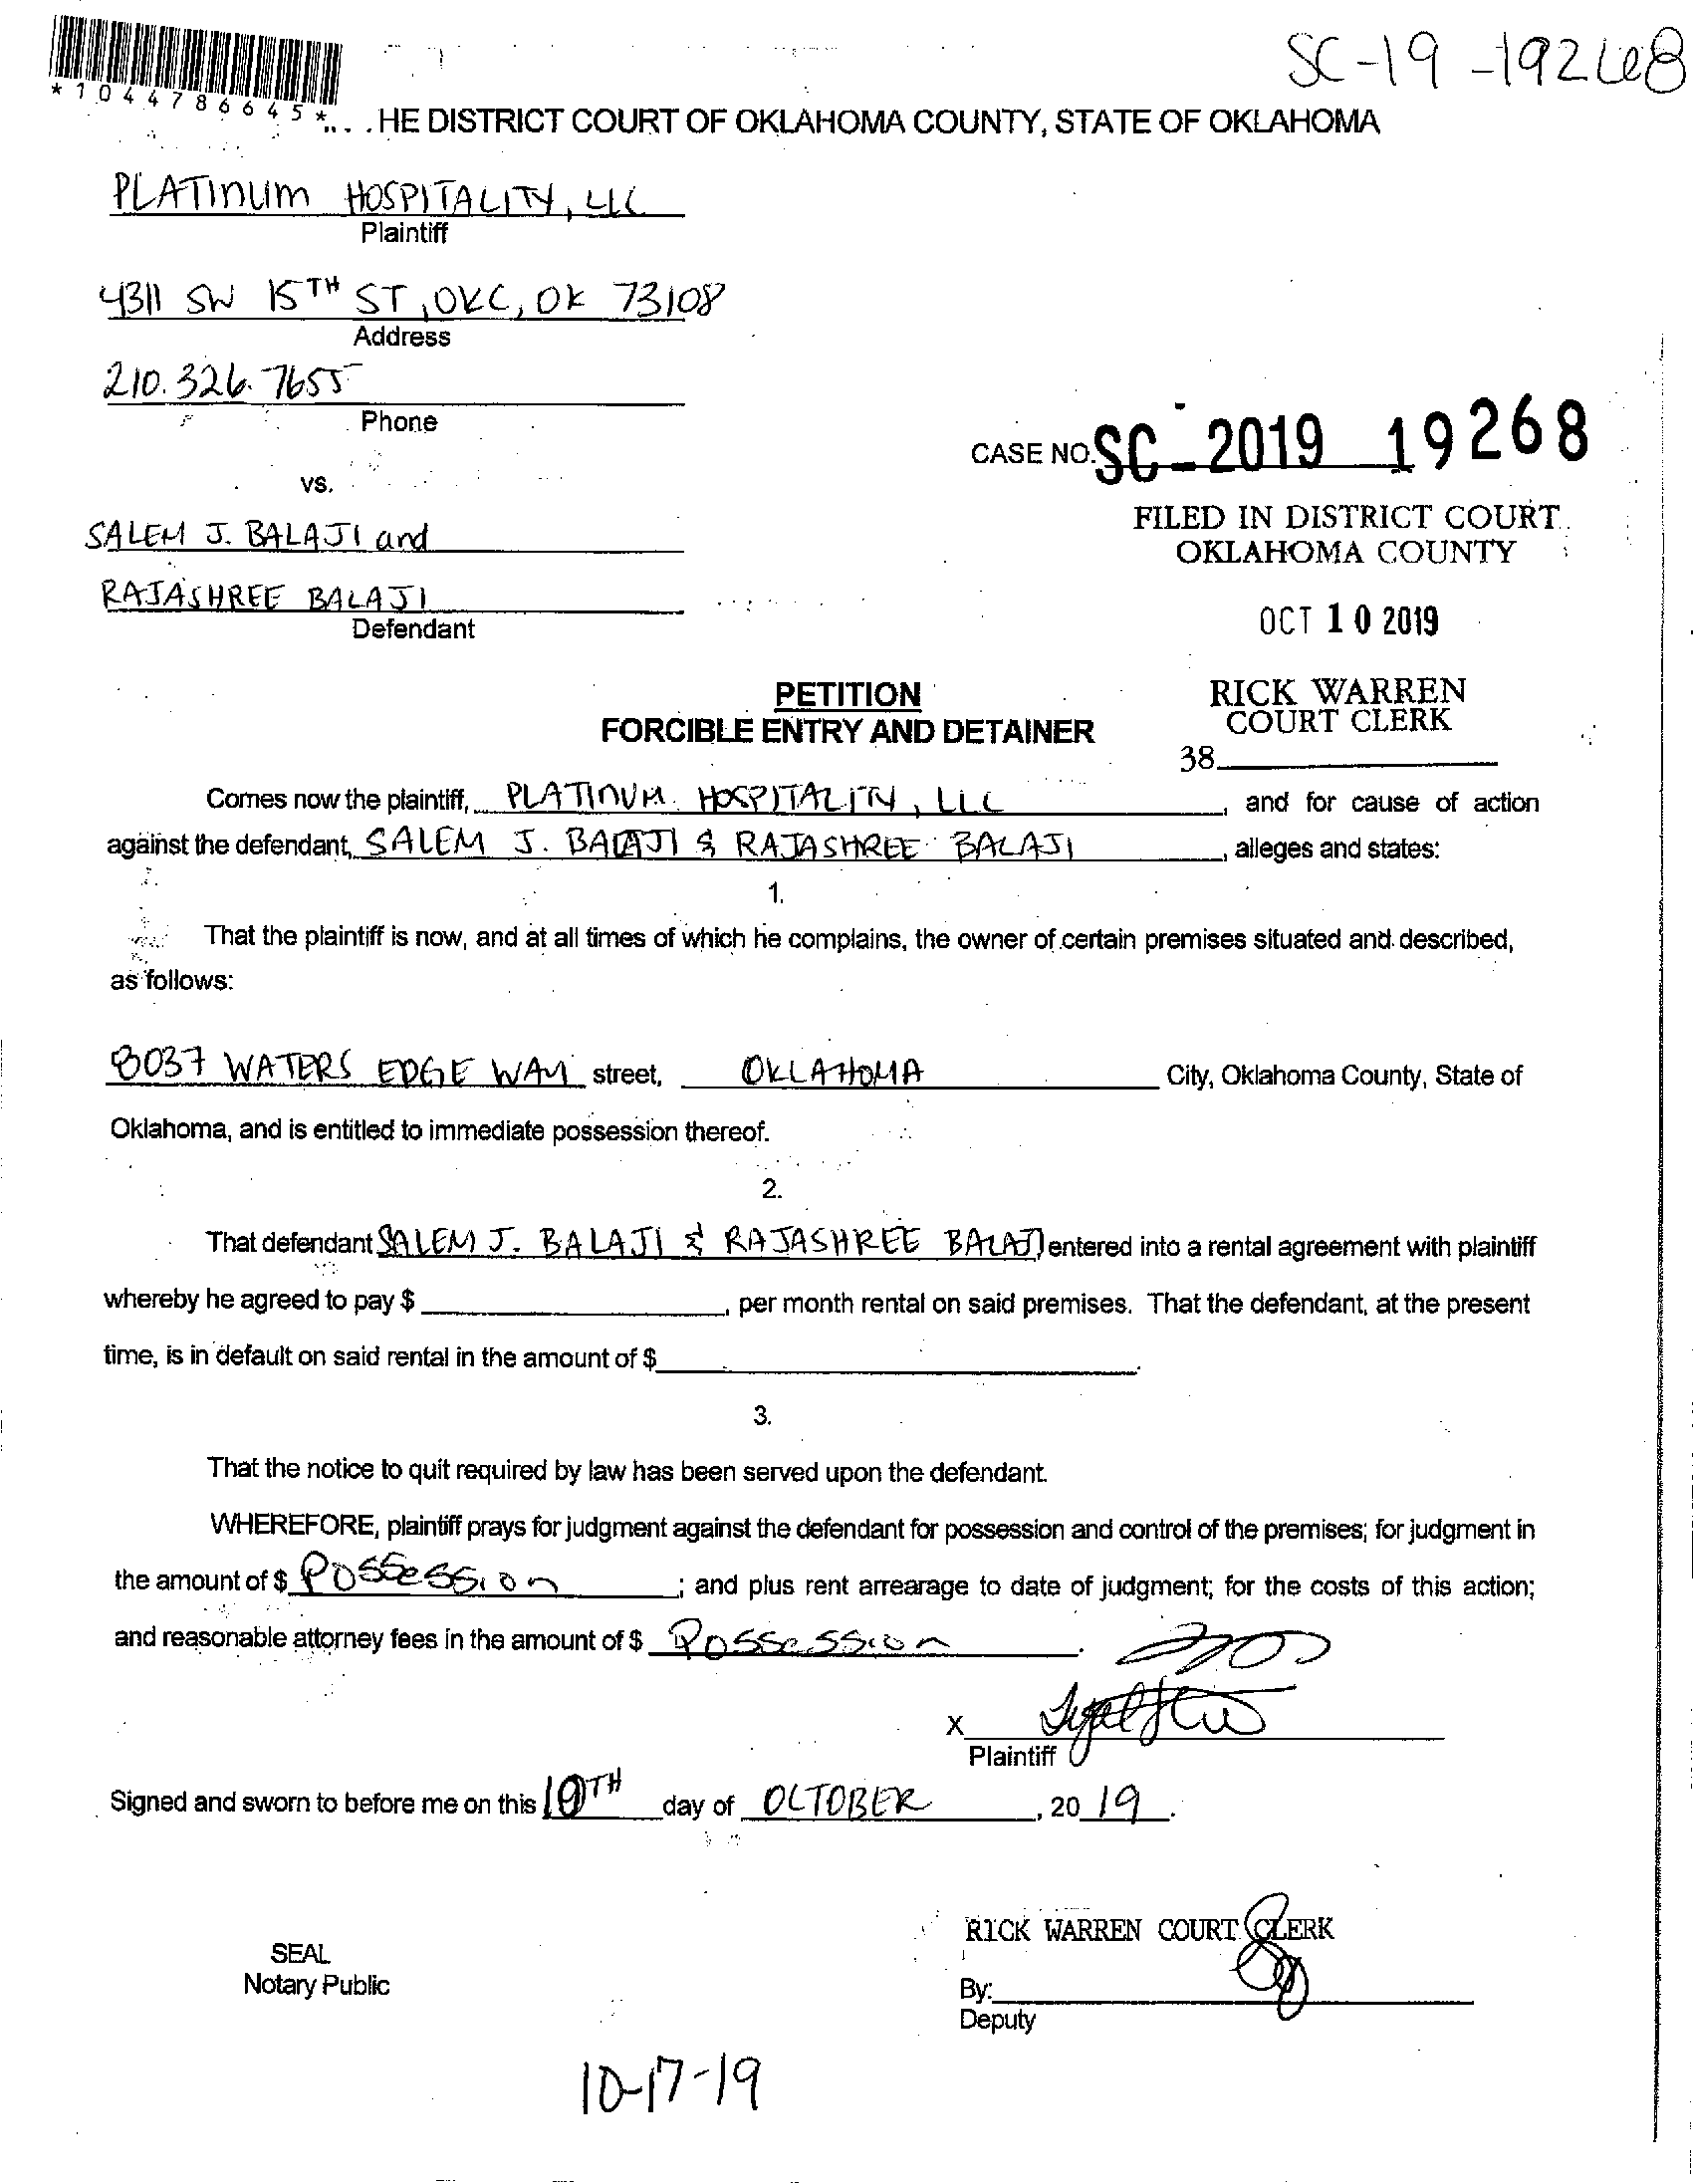 SC-19-19268
*1044786645*
HE DISTRICT COURT OF OKLAHOMA COUNTY, STATE OF OKLAHOMA
PLATINUM HOSPITALITY, LLC
Plaintiff
4311 SW 15TH ST, OKC, OK 73108
Address
210.326.7655
Phone
CASE NO. SC-2019 19268
vs.
FILED IN DISTRICT COURT
OKLAHOMA COUNTY
SALEM J. BALAJI and
RAJASHREE BALAJI
Defendant
OCT 10 2019
PETITION
FORCIBLE ENTRY AND DETAINER
RICK WARREN
COURT CLERK
38
Comes now the plaintiff, PLATINUM HOSPITALITY, LLC, and for cause of action
against the defendant, SALEM J. BALAJI & RAJASHREE BALAJI, alleges and states:
1.
That the plaintiff is now, and at all times of which he complains, the owner of certain premises situated and described,
as follows:
8037 WATERS EDGE WAY street, OKLAHOMA City, Oklahoma County, State of
Oklahoma, and is entitled to immediate possession thereof.
2.
That defendant SALEM J. BALAJI & RAJASHREE BALAJI entered into a rental agreement with plaintiff
whereby he agreed to pay $ , per month rental on said premises. That the defendant, at the present
time, is in default on said rental in the amount of $ .
3.
That the notice to quit required by law has been served upon the defendant.
WHEREFORE, plaintiff prays for judgment against the defendant for possession and control of the premises; for judgment in
the amount of $ Possession ; and plus rent arrearage to date of judgment; for the costs of this action;
and reasonable attorney fees in the amount of $ Possession .
X
Plaintiff
Signed and sworn to before me on this 10TH day of OCTOBER, 20 19.
RICK WARREN COURT CLERK
SEAL
Notary Public
By:
Deputy
10-17-19